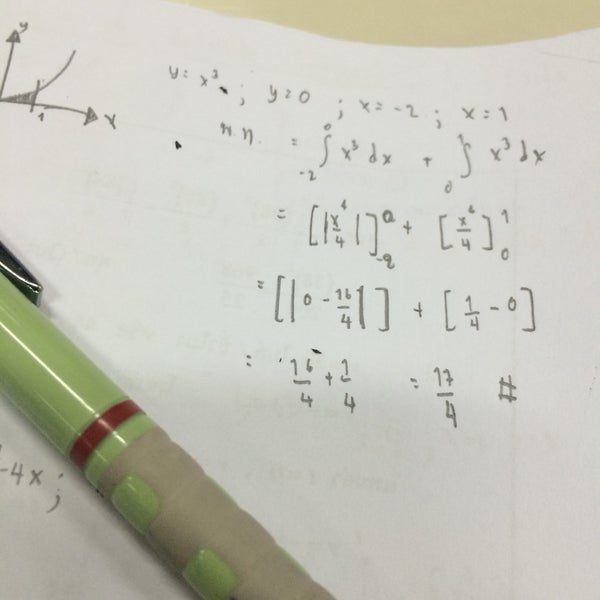 y
1 x
y = x³ ; y = 0 ; x = -2 ; x = 1
พ.ท. = ∫₋₂⁰ x³ dx + ∫₀¹ x³ dx
= [|x⁴/4|]₋₂⁰ + [x⁴/4]₀¹
= [|0 - 16/4|] + [1/4 - 0]
= 16/4 + 1/4 = 17/4 #
-4x ;